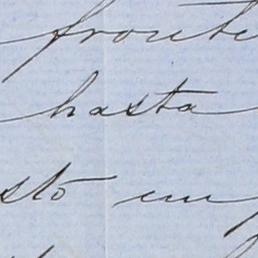 fronte
hasta
sto en